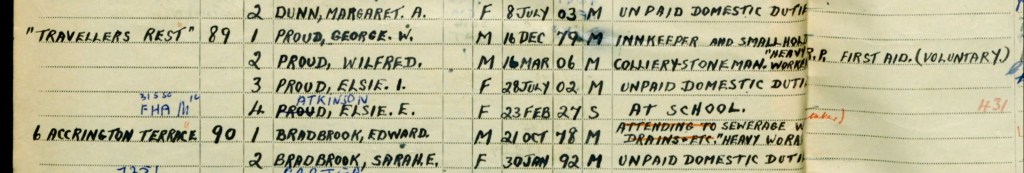 2 DUNN, MARGARET. A. F 8 JULY 03 M UNPAID DOMESTIC DUTI
"TRAVELLERS REST" 89 1 PROUD, GEORGE. W. M 16 DEC 79 M INNKEEPER AND SMALL HOL
2 PROUD, WILFRED. M 16 MAR 06 M COLLIERY STONEMAN. "HEAVY WORKE R.P. FIRST AID. (VOLUNTARY.)
3 PROUD, ELSIE. I. F 28 JULY 02 M UNPAID DOMESTIC DUTI
FHA ATKINSON
4 PROUD, ELSIE. E. F 23 FEB 27 S AT SCHOOL. 431
6 ACCRINGTON TERRACE 90 1 BRADBROOK, EDWARD. M 21 OCT 78 M ATTENDING TO SEWERAGE W
DRAINS ETC. "HEAVY WORK
2 BRADBROOK, SARAH. E. F 30 JAN 92 M UNPAID DOMESTIC DUTI